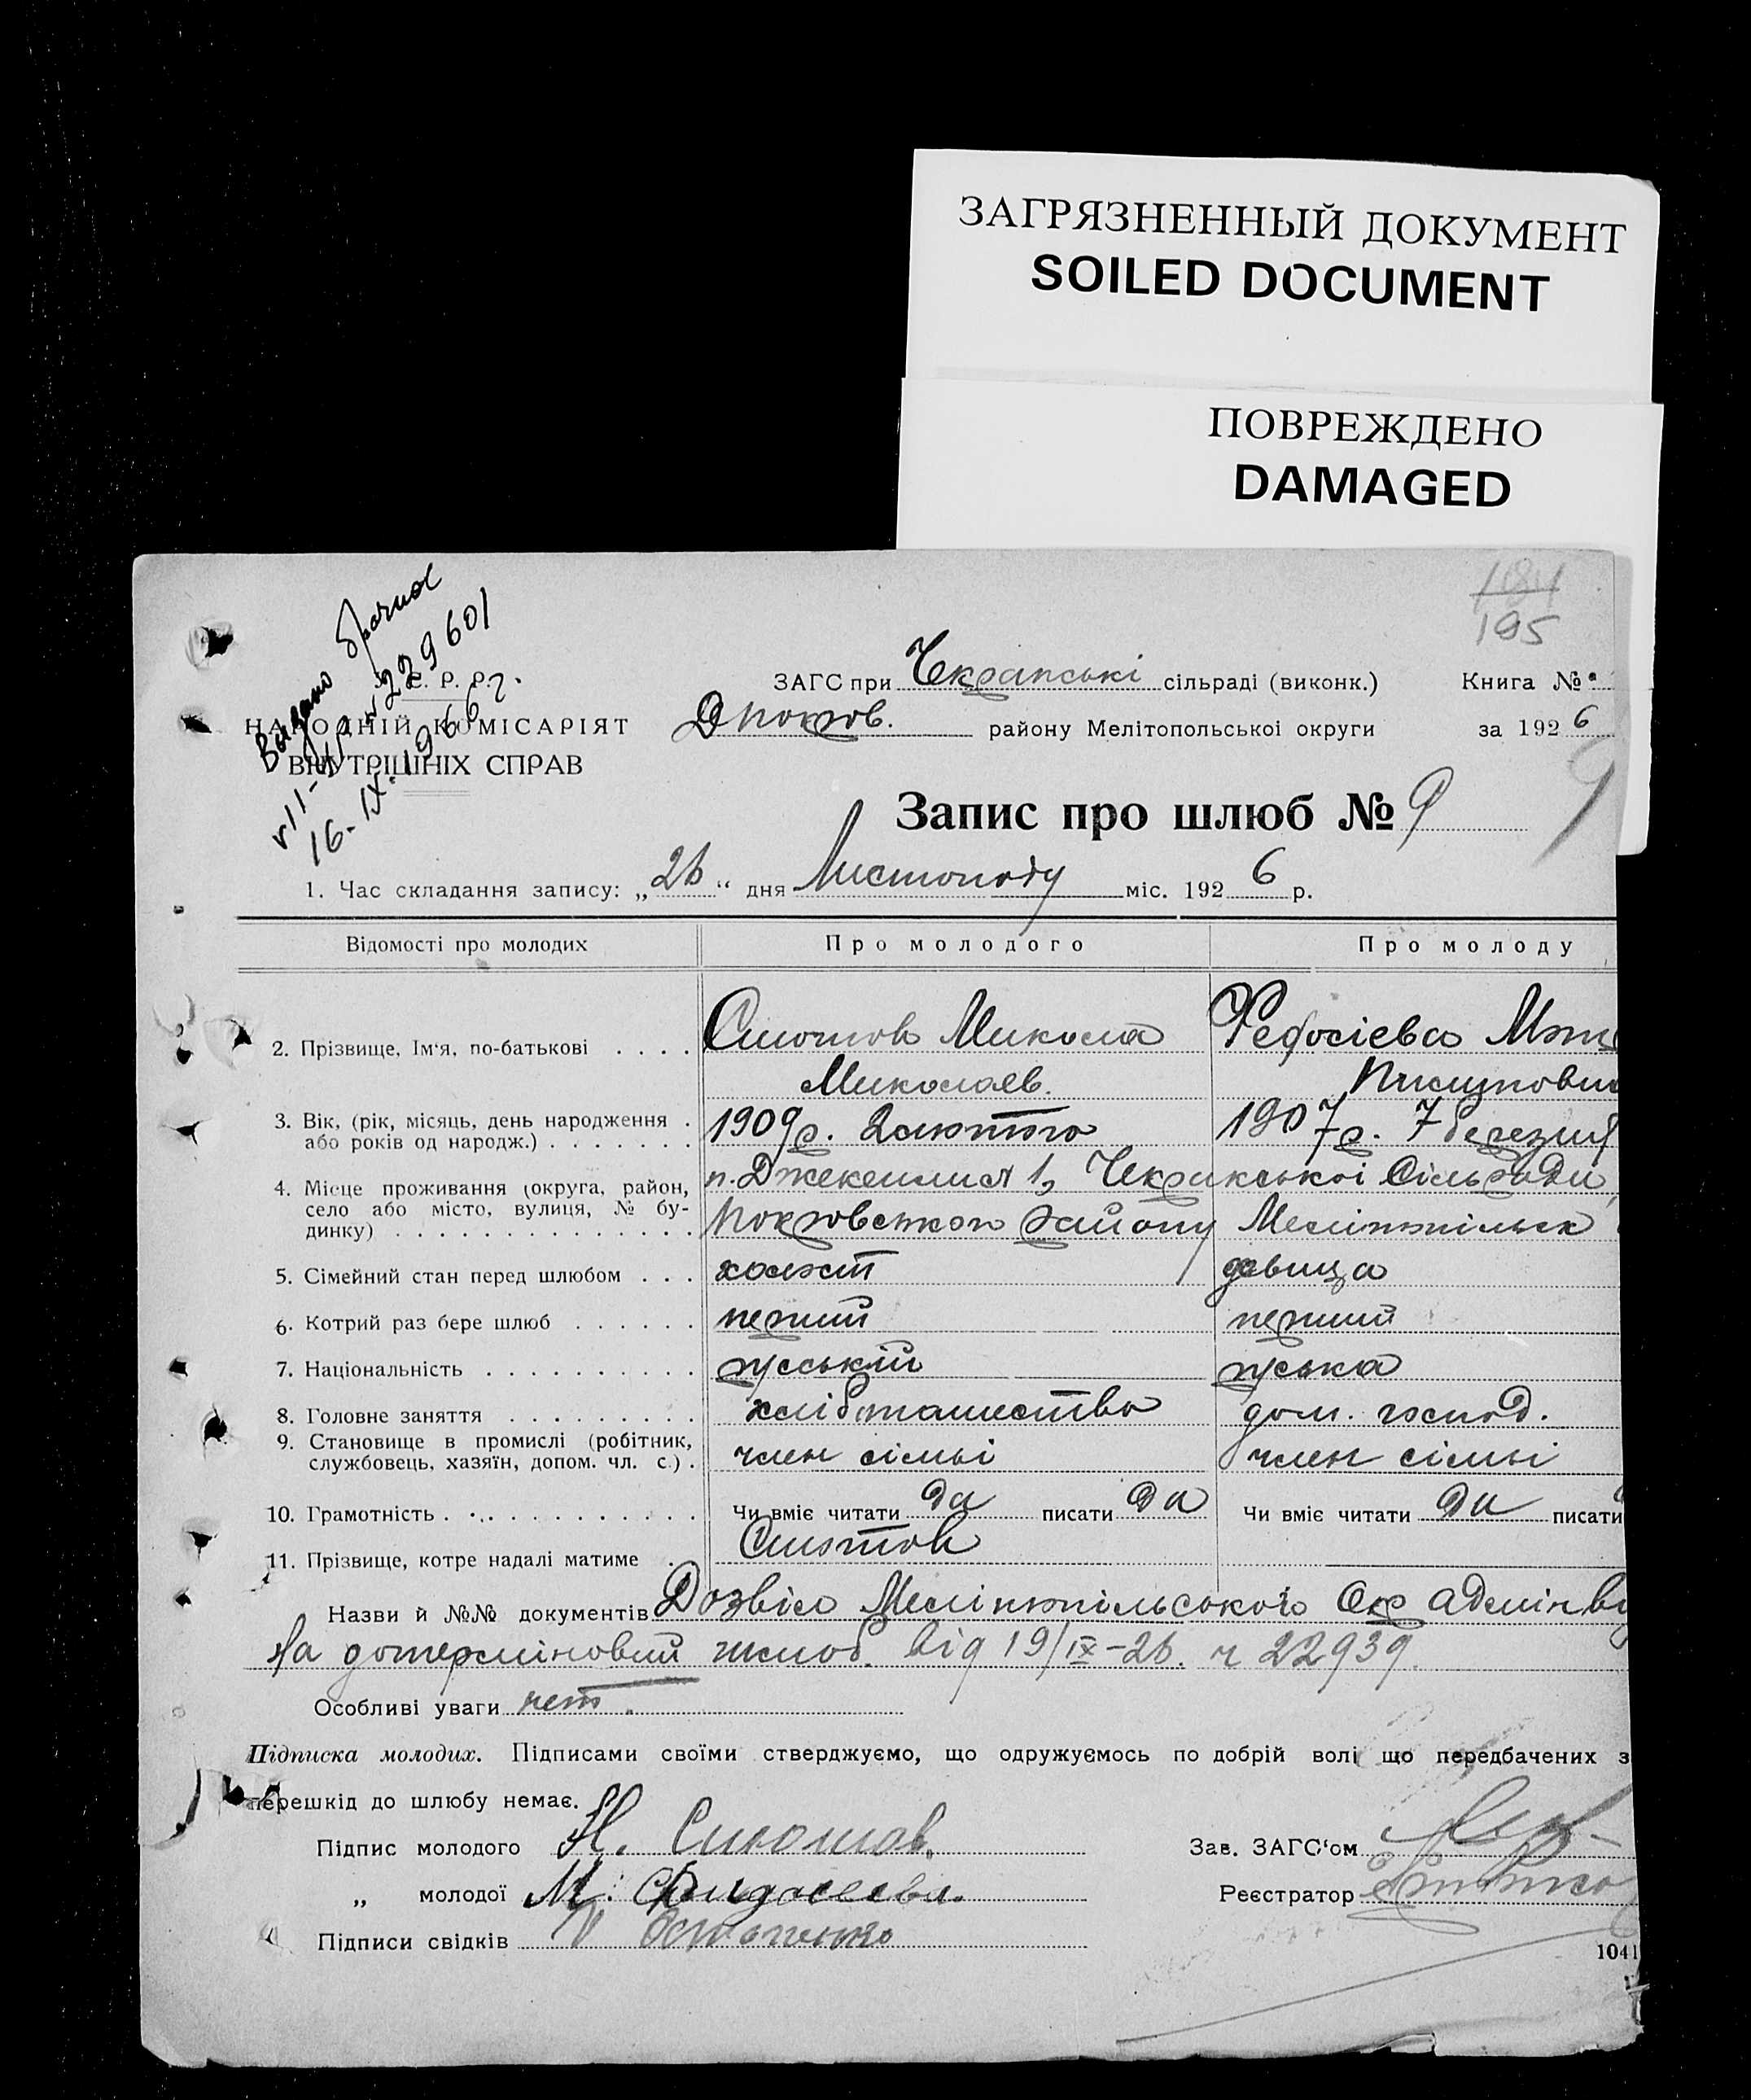 ЗАГРЯЗНЕННЫЙ ДОКУМЕНТ
SOILED DOCUMENT
ПОВРЕЖДЕНО
DAMAGED
184
195
Выдано брачное
229601
16-IX-1966 г.
С. Р. Р.
НАРОДНІЙ КОМІСАРІЯТ
ВНУТРІШНІХ СПРАВ
ЗАГС при сільраді (виконк.) Книга №
Покров. району Мелітопольської округи за 1926
Запис про шлюб № 9
9
1. Час складання запису: „26“ дня Листопаду міс. 1926 р.
Відомості про молодих Про молодого Про молоду
2. Прізвище, Ім‘я, по-батькові . . . . Микола Федосієва
Миколаєв.
3. Вік, (рік, місяць, день народження . 1909 р. 2 лютого 1907 р. 7 березня
або років од народж.) . . . . . . .
4. Місце проживання (округа, район, п. 1, Сільради,
село або місто, вулиця, № бу- Покровського району Мелітпільськ
динку) . . . . . . . . . . . . . .
5. Сімейний стан перед шлюбом . . . холост дівица
6. Котрий раз бере шлюб . . . . . . перший перший
7. Національність . . . . . . . . . . руській руська
8. Головне заняття . . . . . . . . . дом. господ.
9. Становище в промислі (робітник, член сімьі член сімьі
службовець, хазяїн, допом. чл. с.) .
10. Грамотність . . . . . . . . . . . . Чи вміє читати да писати да Чи вміє читати да писати
11. Прізвище, котре надалі матиме .
Назви й №№ документів Дозвіл Мелітпільського Окр адмін
На дотерміновий шлюб. від 19/IX-26. ч 22939.
Особливі уваги нет.
Підписка молодих. Підписами своїми стверджуємо, що одружуємось по добрій волі що передбачених з
перешкід до шлюбу немає.
Підпис молодого Н. Зав. ЗАГС‘ом
„ молодої М. Реєстратор
Підписи свідків
1041